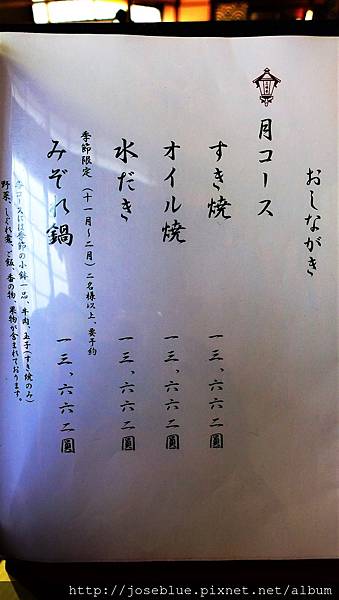 おしながき
月コース
すき焼 一三、六六二圓
オイル焼 一三、六六二圓
水だき 一三、六六二圓
季節限定（十一月〜二月）二名様以上、要予約
みぞれ鍋 一三、六六二圓
各コースには季節の小鉢一品、牛肉、玉子（すき焼のみ）
野菜、しぐれ煮、ご飯、香の物、果物が含まれております。
http://joseblue.pixnet.net/album